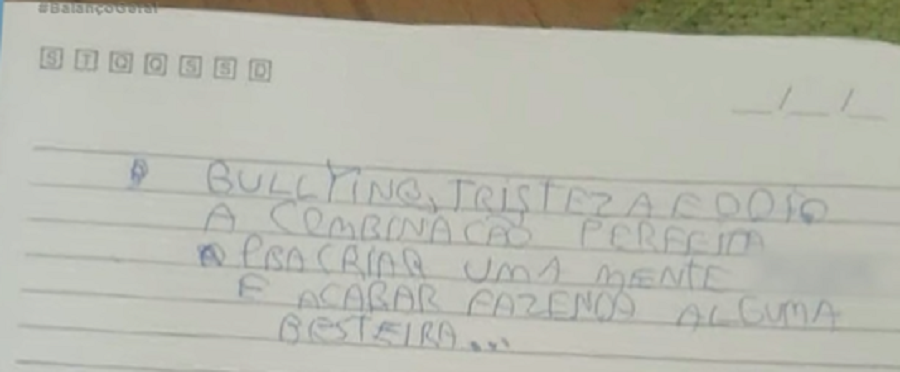 #BalançoGeral
S T Q Q S S D
__/__/__
BULLYING, TRISTEZA E ODIO
A COMBINACÃO PERFEITA
PRA CRIAR UMA MENTE
E ACABAR FAZENDO ALGUMA
BESTEIRA...